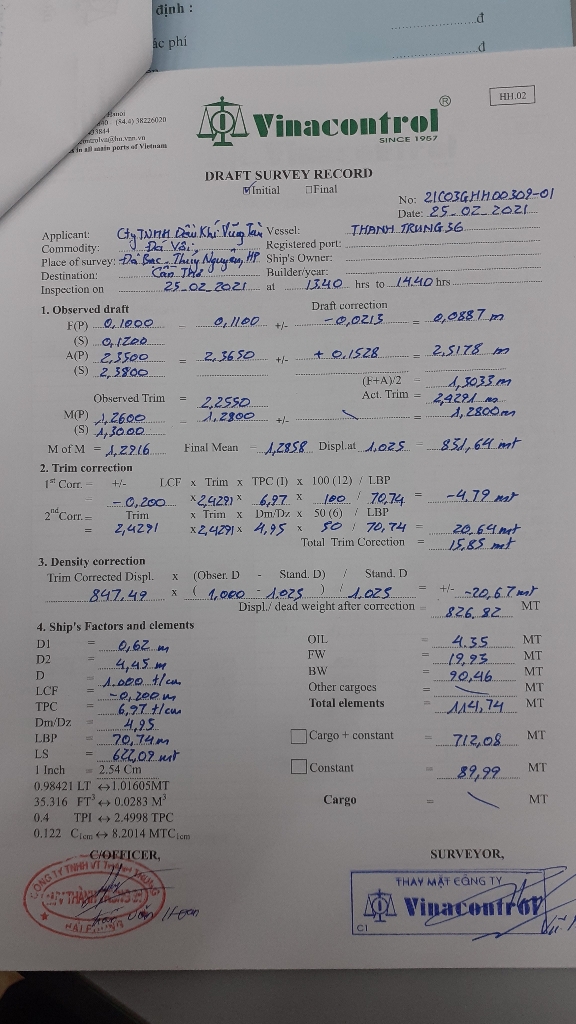 định :
ắc phí
......................đ
......................đ
(84.4) 38226020
33844
@hn.vnn.vn
in all main ports of Vietnam
Vinacontrol ®
SINCE 1957
HH.02
DRAFT SURVEY RECORD
☑Initial □Final
No: 21C03GHH00309-01
Date: 25-02-2021
Applicant: Cty TNHH Dầu Khí Vũng Tàu Vessel: THÀNH TRUNG 36
Commodity: Đá Vôi Registered port:
Place of survey: Đá Bạc - Thủy Nguyên, HP Ship's Owner:
Destination: Cần Thơ Builder/year:
Inspection on 25-02-2021 at 13.40 hrs to 14.40 hrs
1. Observed draft Draft correction
F(P) 0,1000 = 0,1100 +/- -0,0213 = 0,0887 m
(S) 0,1200
A(P) 2,3500 = 2,3650 +/- + 0,1528 = 2,5178 m
(S) 2,3800
(F+A)/2 = 1,3033 m
Observed Trim = 2,2550 Act. Trim = 2,4291 m
M(P) 1,2600 = 1,2800 +/- \ = 1,2800 m
(S) 1,3000
M of M = 1,2916 Final Mean = 1,2858 Displ.at 1,025 = 831,64 mt
2. Trim correction
1st Corr. = +/- LCF x Trim x TPC (I) x 100 (12) / LBP
- 0,200 x 2,4291 x 6,97 x 100 / 70,74 = -4,79 mt
2nd Corr. = Trim x Trim x Dm/Dz x 50 (6) / LBP
= 2,4291 x 2,4291 x 4,95 x 50 / 70,74 = 20,64 mt
Total Trim Corection = 15,85 mt
3. Density correction
Trim Corrected Displ. x (Obser. D - Stand. D) / Stand. D
847,49 x ( 1,000 - 1.025 ) / 1,025 = +/- -20,67 mt
Displ./ dead weight after correction = 826,82 MT
4. Ship's Factors and elements
D1 = 0,62 m
D2 = 4,45 m
D = 1.000 t/cm
LCF = -0,200 m
TPC = 6,97 t/cm
Dm/Dz = 4,95
LBP = 70,74 m
LS = 622,09 mt
1 Inch = 2.54 Cm
0.98421 LT ↔1.01605MT
35.316 FT³ ↔ 0.0283 M³
0.4 TPI ↔ 2.4998 TPC
0.122 C₁cm ↔ 8.2014 MTC₁cm
OIL = 4.35 MT
FW = 19,93 MT
BW = 90,46 MT
Other cargoes = \ MT
Total elements = 114,74 MT
□ Cargo + constant = 712,08 MT
□ Constant = 89,99 MT
Cargo = \ MT
C/OFFICER,
SURVEYOR,
CÔNG TY TNHH VT THÀNH TRUNG
HẢI PHÒNG
THAY MẶT CÔNG TY
Vinacontrol
C1